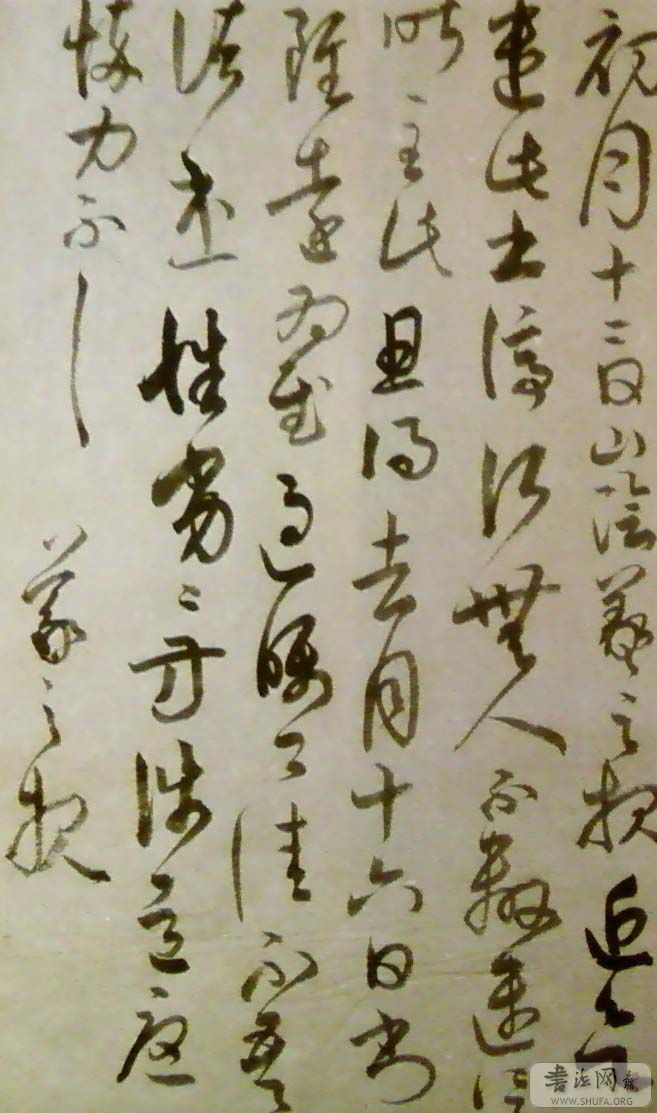 初月十二日山陰羲之報近欲
遣此書停行無人不辦遣信
昨至此且得去月十六日書
雖遠為慰過囑卿佳不吾
諸患殊劣々方涉道憂
悴力不具羲之報
書法网
WWW.SHUFA.ORG